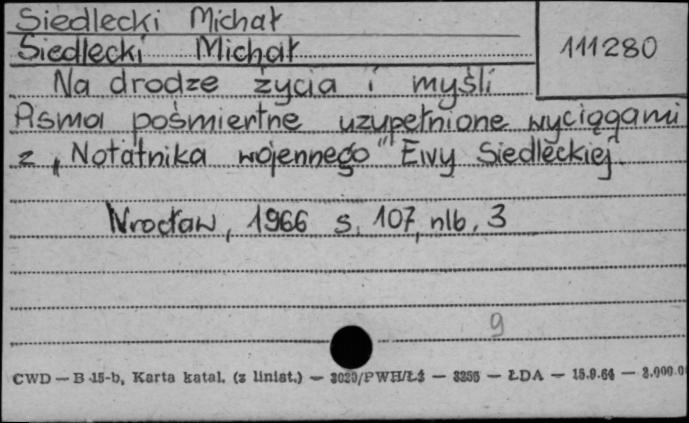 Siedlecki Michał
111280
Siedlecki Michał
Na drodze życia i myśli
Pisma pośmiertne uzupełnione wyciągami
z „Notatnika wojennego" Ewy Siedleckiej.
Wrocław, 1966 s. 107, nlb. 3
9
CWD — B-15-b, Karta katal. (z liniat.) — /PWH/Łż — — ŁDA — 15.9.64 —